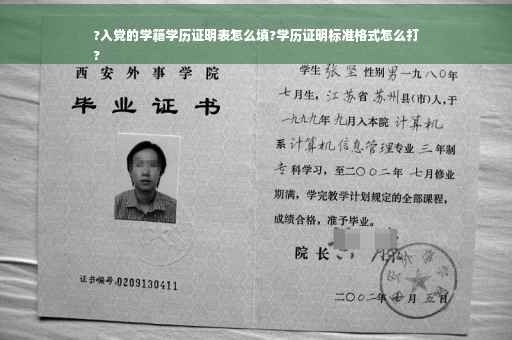 ?入党的学籍学历证明表怎么填?学历证明标准格式怎么打
?
西安外事学院
毕业证书
证书编号:0209130411
学生 张坚 性别男一九八〇年
七月生，江苏省苏州县(市)人,于
一九九九年九月入本院 计算机
系计算机信息管理专业 三 年制
专科学习，至二〇〇二年 七月修业
期满，学完教学计划规定的全部课程，
成绩合格，准予毕业。
院长
二〇〇二年 月五日